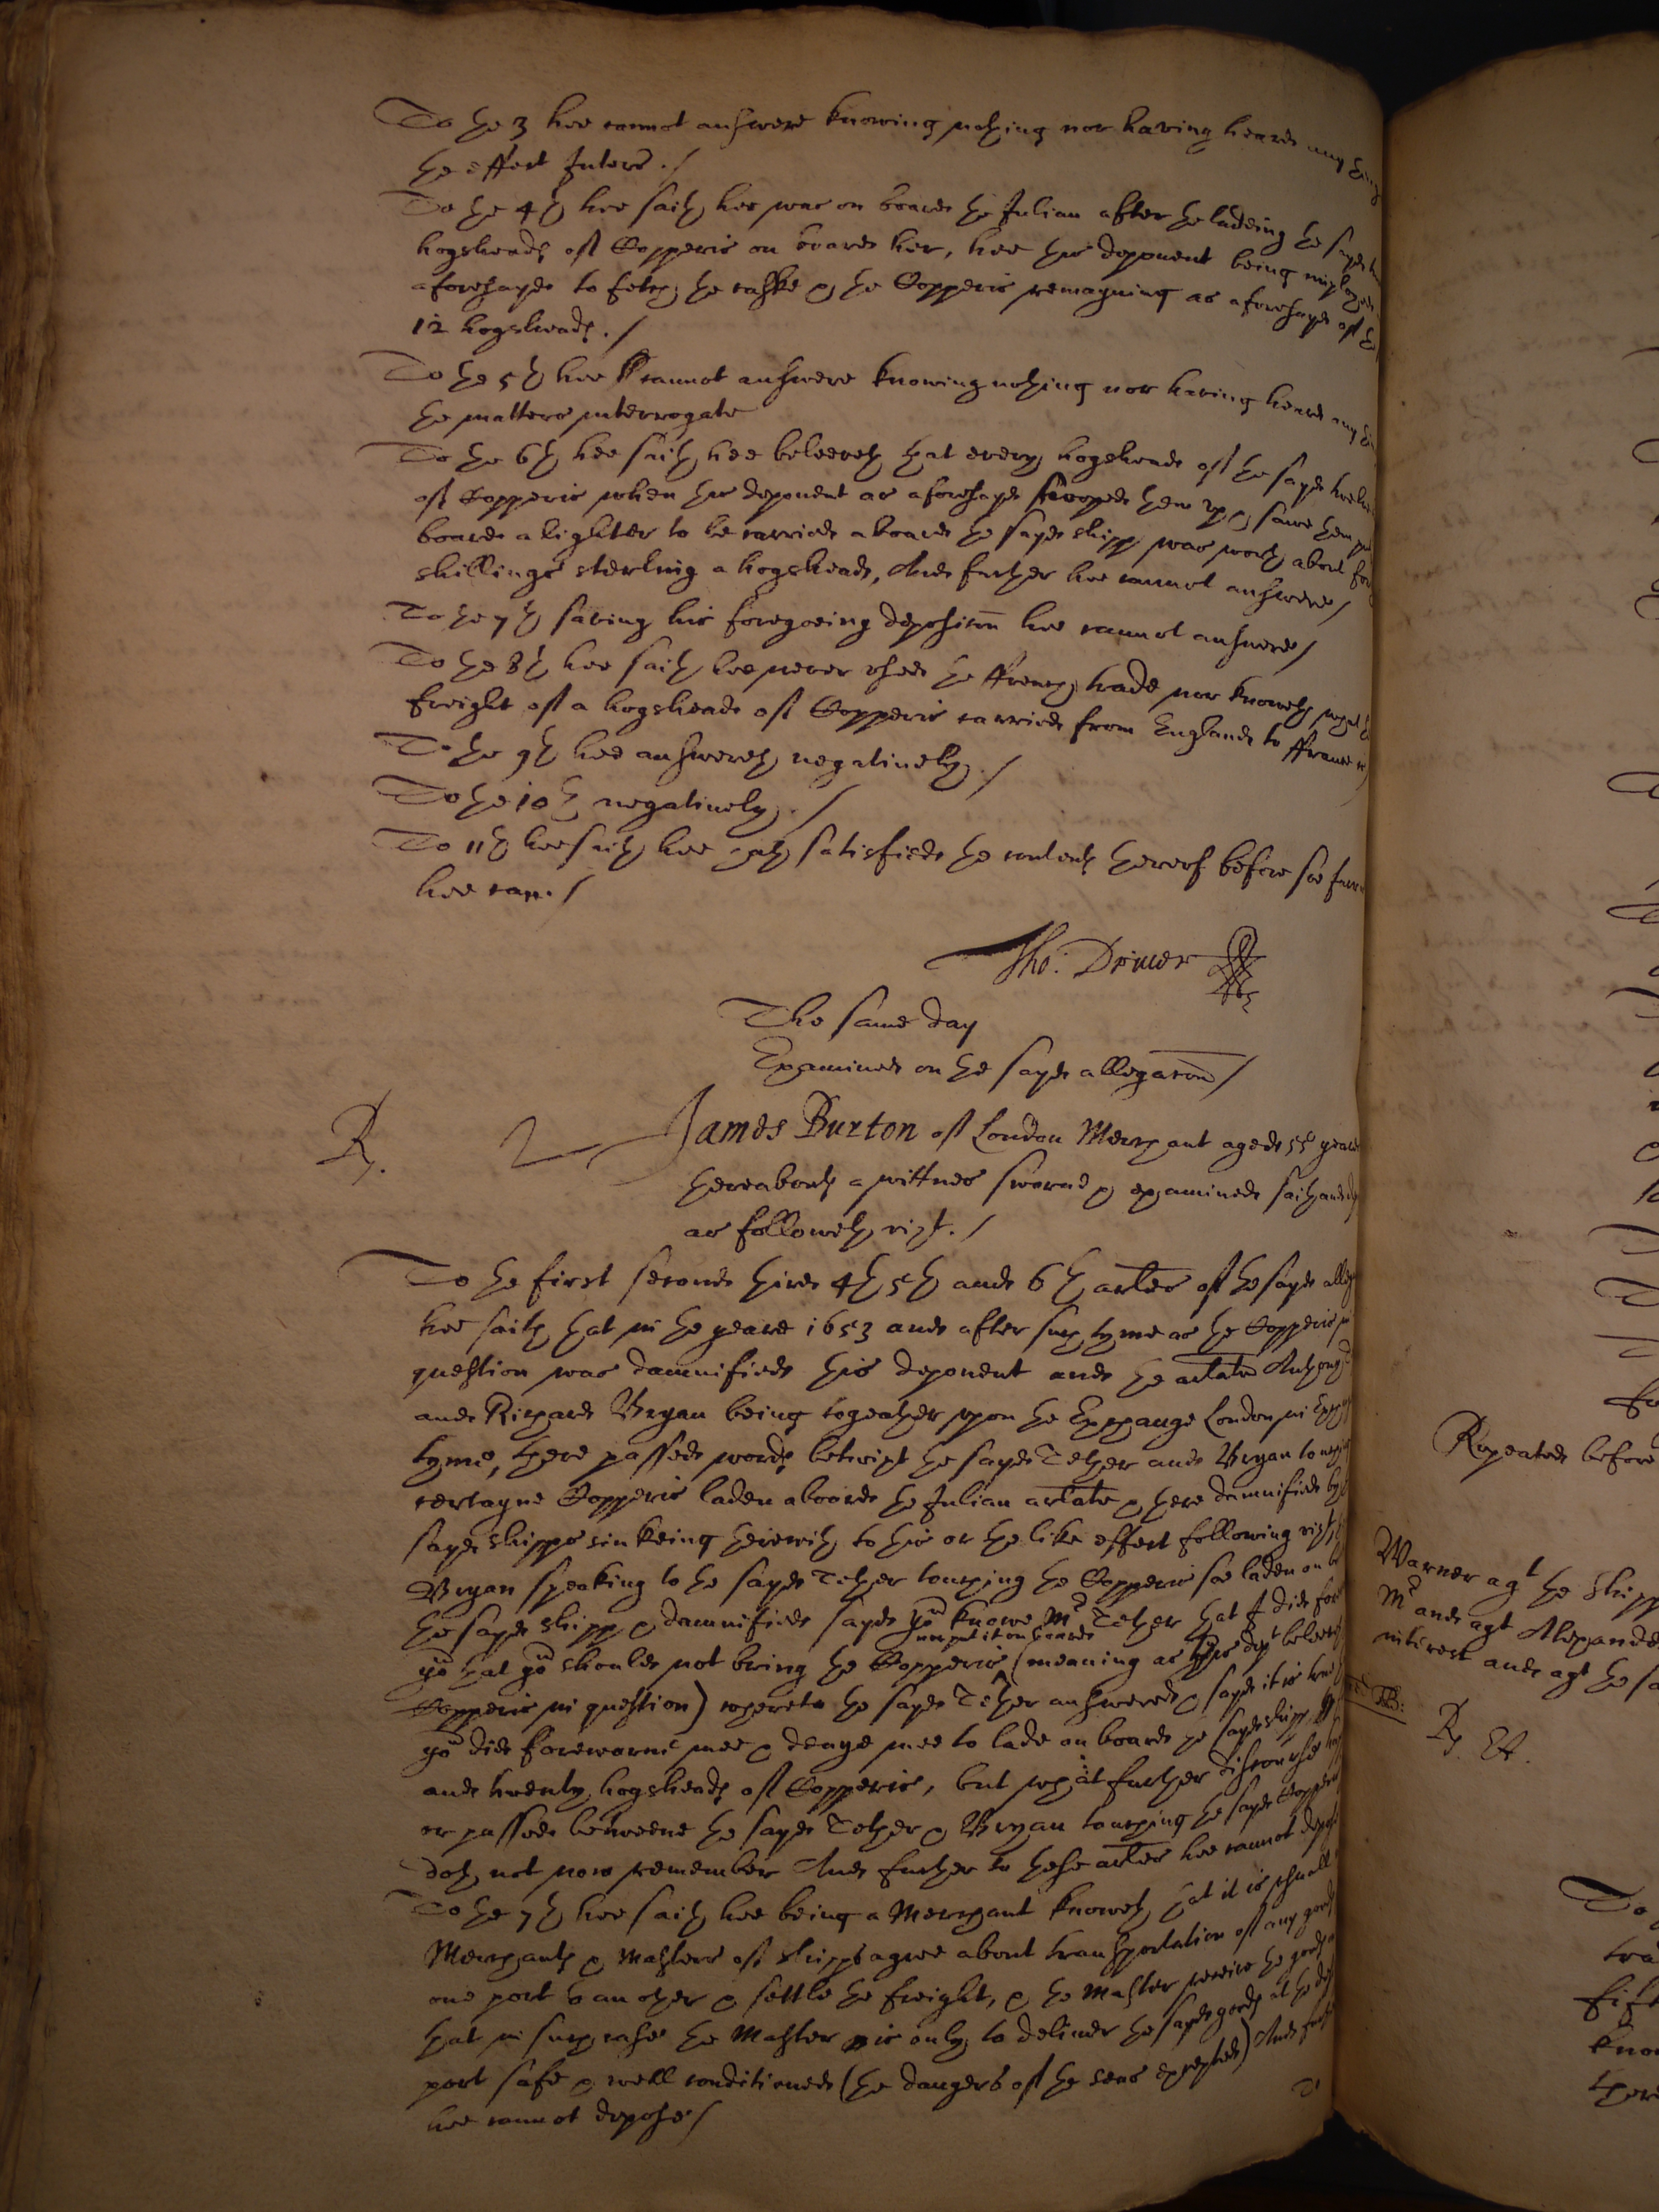 To the 3 hee cannot answere knowing nothing nor having heard any thing
the effect Interr ./
To the 4th hee saith hee was on board the Julian after the ladeing the sayd
hogsheads of Copperis on board her, hee this deponent being imployed
aforesayd to fetch the caske & the Copperis remayning as aforesayd of the
12 hogsheads./
To the 5th hee cannot answere knowing nothing nor having heard any
the matters interrogate
To the 6th hee saith hee beleeveth that every hogshead of the sayd twelve
of Copperis when this deponent as aforesayd them up & sawe them
board a lighter to be carried aboard the sayd shipp was worth about
shillings sterling a hogshead, And further hee cannot answere/
To the 7th saving his foregoeing deposicon hee cannot answere/
To the 8th hee saith hee never used the ffrench trade nor knoweth what
freight of a hogshead of Copperis carried from England to ffrance
To the 9th hee answereth negatively./
To the 10th negatively./
To 11th hee saith hee hath satisfied the contents thereof before soe farr
hee can./
Tho: Driver
The same day
Examined on the sayd allegacon/
Rp. 2 James Burton of London Merchant aged 55 yeares
thereabouts a wittnes sworne & examined saith and
as followeth vizt./
To the first second third 4th 5th and 6th arles of the sayd
hee saith that in the yeare 1653 and after such tyme as the Copperis in
question was damnified this deponent and the arlate Anthony
and Richard Bryan being togeather upon the Exchange London in Exchange
tyme, there passed words betwixt the sayd Tether and Bryan touching
certayne Copperis laden aboard the Julian arlate & there damnified by
sayd shipps sinkeing therewith to this or the like effect following vizt,
Bryan speaking to the sayd Tether touching the Copperis soe laden on
the sayd shipp & damnified sayd you knowe Mr Tether that I did
you that you should not bring the Copperis nor put it on board (meaning as this dept beleeveth
Copperis in question) whereto the sayd Tether answered & sayd it is true
you did forewarne mee & denye mee to lade on board the sayd shipp
and twenty hogsheads of Copperis, but what further discourse
or passed betweene the sayd Tether & Bryan touching the sayd Copperis
doth not now remember And further to these arles hee cannot depose
To the 7th hee saith hee being a Merchant knoweth that it is usuall
Merchants & Masters of shipps agree about transportation of any goods
one port to another & settle the freight, & the Master receive the goods
that in such case the Master is only to deliver the sayd goods at the
port safe & well conditioned (the dangers of the seas excepted) And further
hee cannot depose/
Repeated before
Warner agt the shipp
Mr and agt Alexander
interest and agt the
Rp. EA.